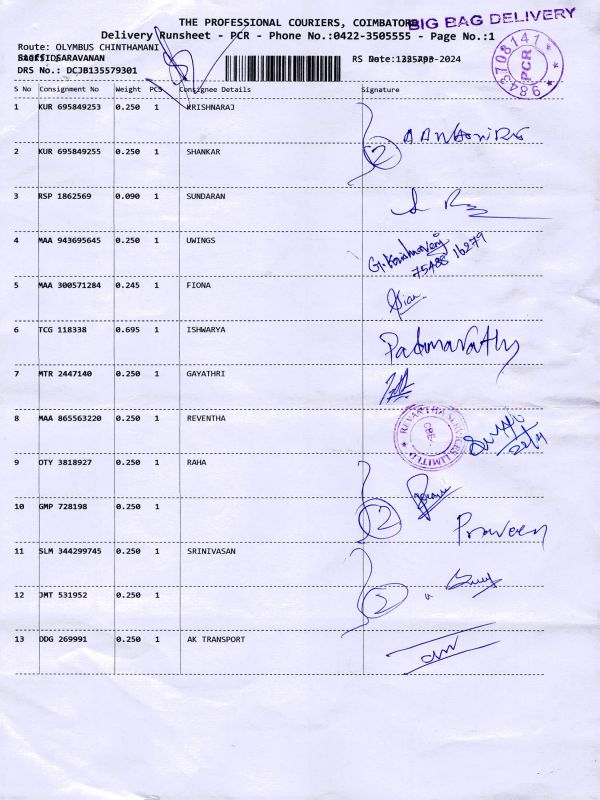 THE PROFESSIONAL COURIERS, COIMBATORE
BIG BAG DELIVERY
Delivery Runsheet - PCR - Phone No.:0422-3505555 - Page No.:1
Route: OLYMBUS CHINTHAMANI
SARAVANAN
RS No
-2024
DRS No.: DCJB135579301
9843708141
PCR
S No Consignment No Weight PCS Consignee Details Signature
1 KUR 695849253 0.250 1 KRISHNARAJ
2 KUR 695849255 0.250 1 SHANKAR
2
3 RSP 1862569 0.090 1 SUNDARAN
4 MAA 943695645 0.250 1 UWINGS
G.Krishnaraj
75488 16279
5 MAA 300571284 0.245 1 FIONA
6 TCG 118338 0.695 1 ISHWARYA
Padmavathy
7 MTR 2447140 0.250 1 GAYATHRI
8 MAA 865563220 0.250 1 REVENTHA
SERVICES LIMITED
CBE.
22/4
9 OTY 3818927 0.250 1 RAHA
10 GMP 728198 0.250 1
2
Praveen
11 SLM 344299745 0.250 1 SRINIVASAN
12 JMT 531952 0.250 1
2
13 DDG 269991 0.250 1 AK TRANSPORT